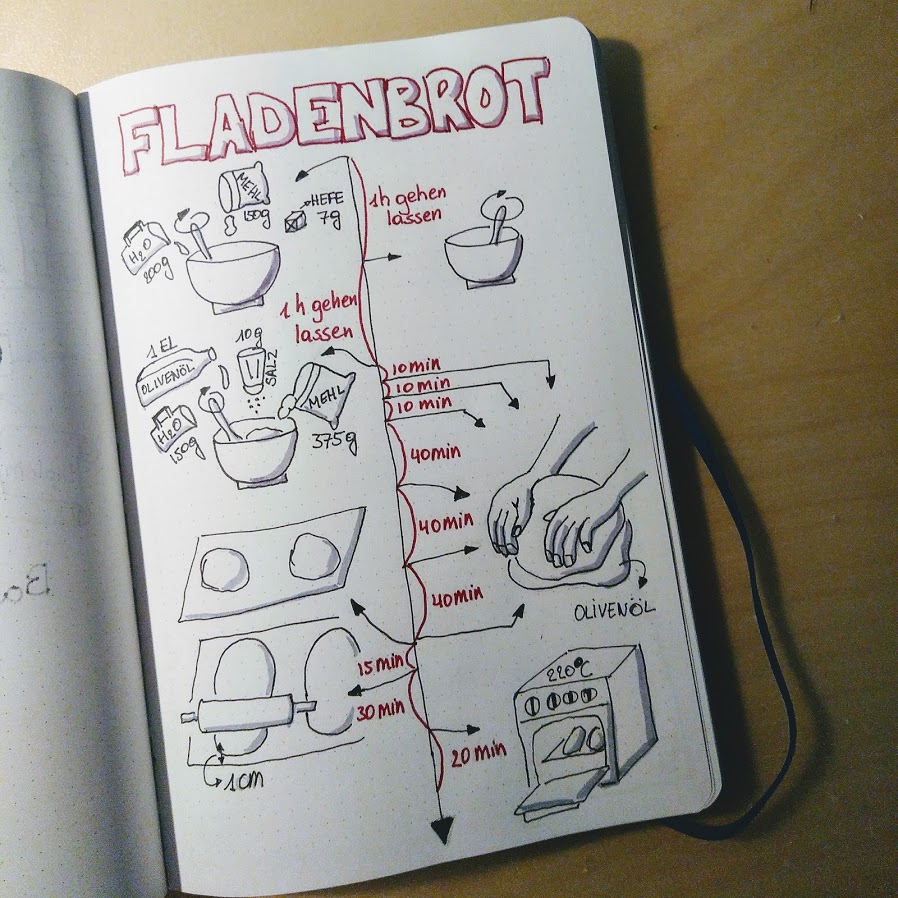 FLADENBROT
MEHL
150g
HEFE
7g
H₂O
200g
1h gehen
lassen
1h gehen
lassen
1 EL
OLIVENÖL
10g
SALZ
MEHL
375g
H₂O
150g
10 min
10 min
10 min
40 min
40 min
40 min
OLIVENÖL
15 min
30 min
1 cm
220°C
20 min